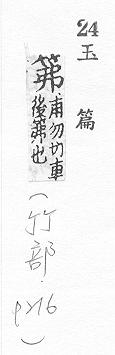 24
玉篇
笰甫勿切車
後笰也
(竹部.
P216)